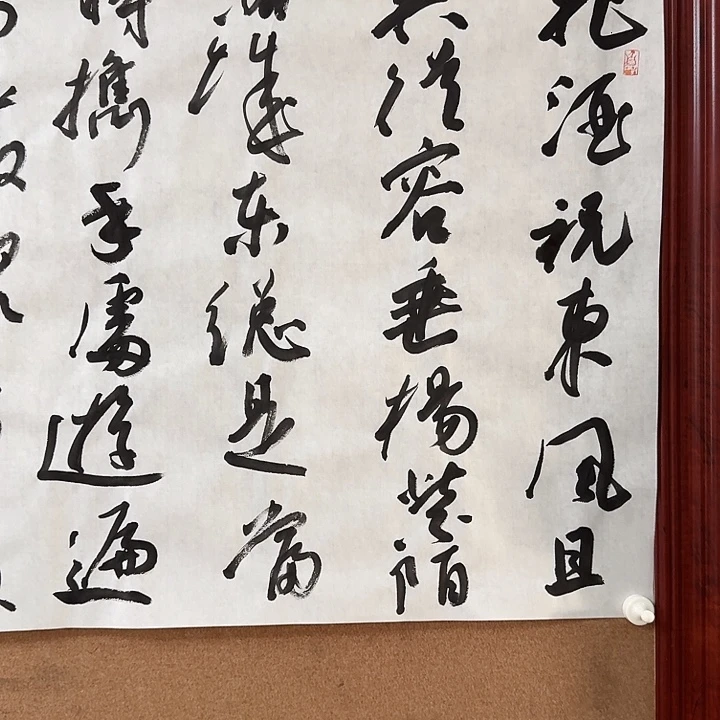 把酒祝東風且
共從容垂楊紫陌
洛城東總是當
時攜手處遊遍